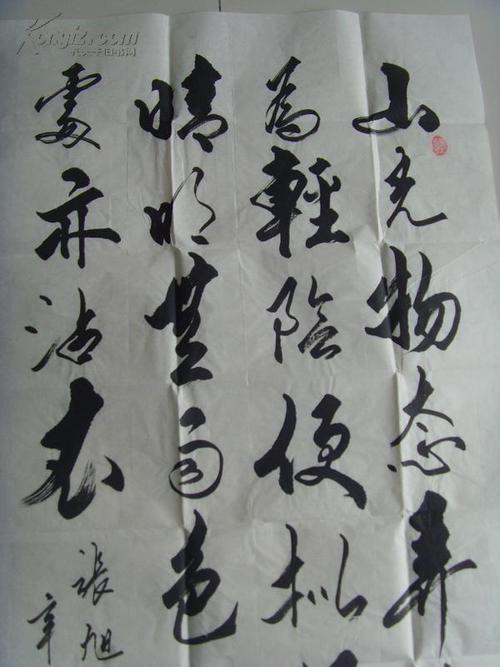 Kongfz.com
孔夫子旧书网
山光物态弄
為輕陰便拟
晴明無雨色
處亦沾衣
張旭
辛